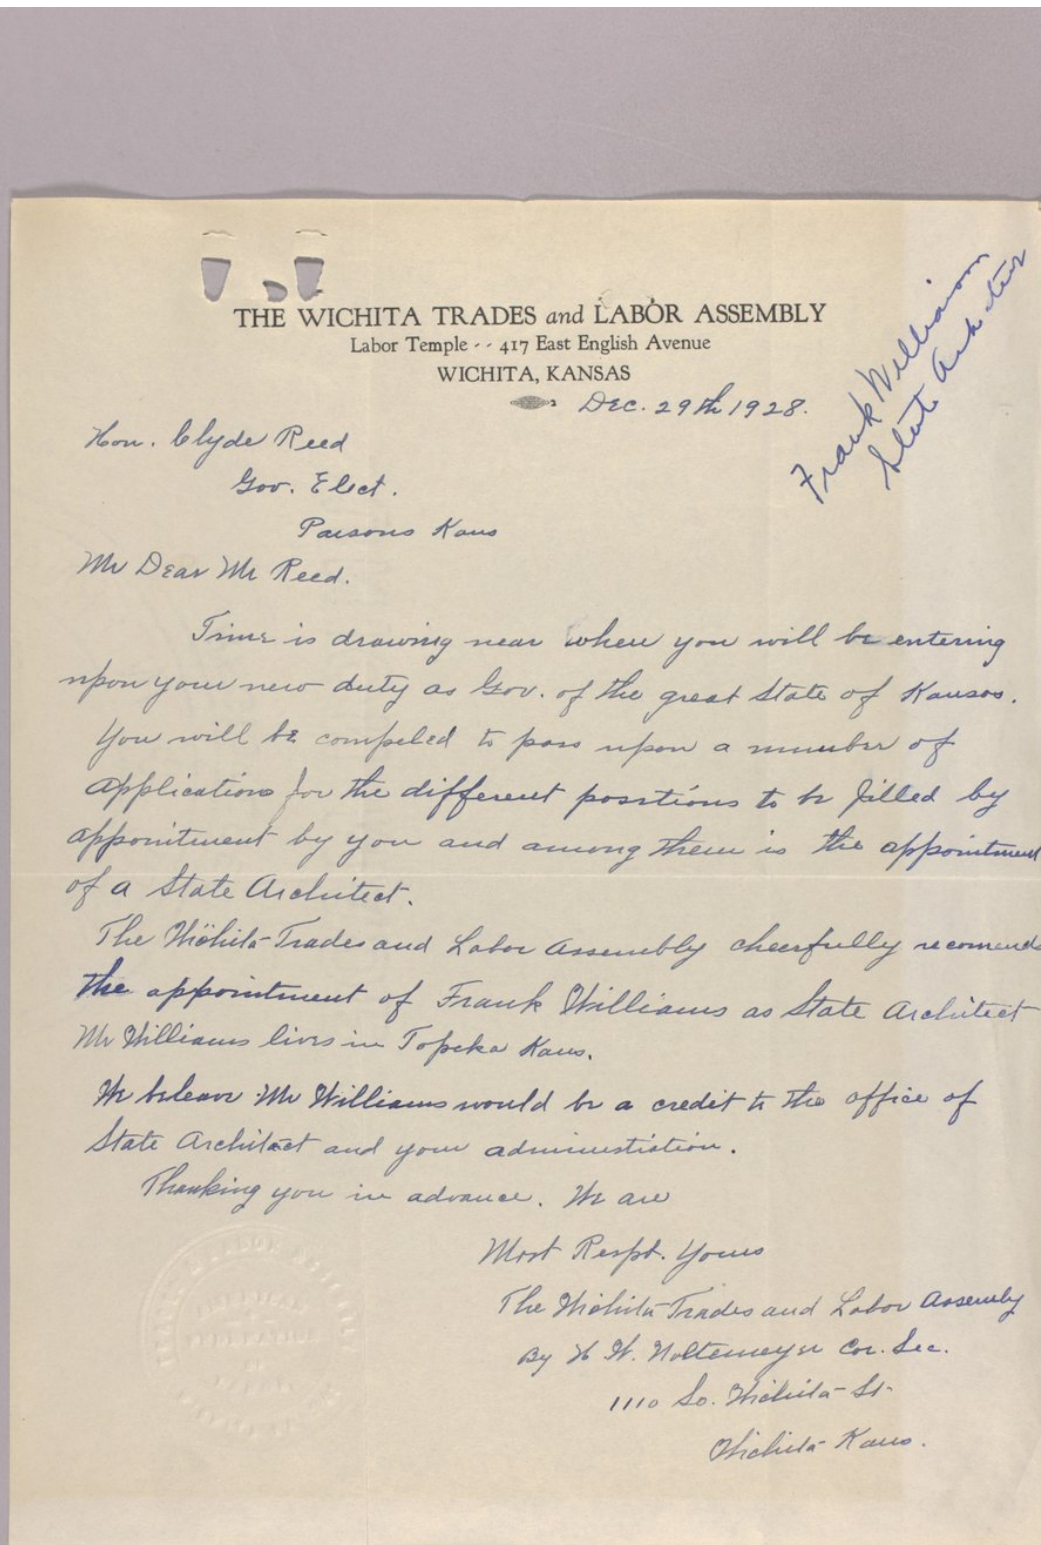 THE WICHITA TRADES and LABOR ASSEMBLY
Labor Temple - - 417 East English Avenue
WICHITA, KANSAS
Dec. 29th 1928.
Frank Williams
State
Hon. Clyde Reed
Gov. Elect.
Parsons Kans
Mr Dear Mr Reed.
Time is drawing near when you will be entering
upon your new duty as Gov. of the great State of Kansas.
You will be compeled to pass upon a number of
applications for the different positions to be filled by
appointment by you and among them is the appointment
of a State Architect.
The Wichita Trades and Labor Assembly cheerfully recomends
the appointment of Frank Williams as State Architect
Mr Williams lives in Topeka Kans.
We beleave Mr Williams would be a credit to the office of
State Architect and your administiation.
Thanking you in advance. We are
Most Respt. Yours
The Wichita Trades and Labor Assembly
By H W. Noltemeyer Cor. Sec.
1110 So. Wichita St.
Wichita Kans.